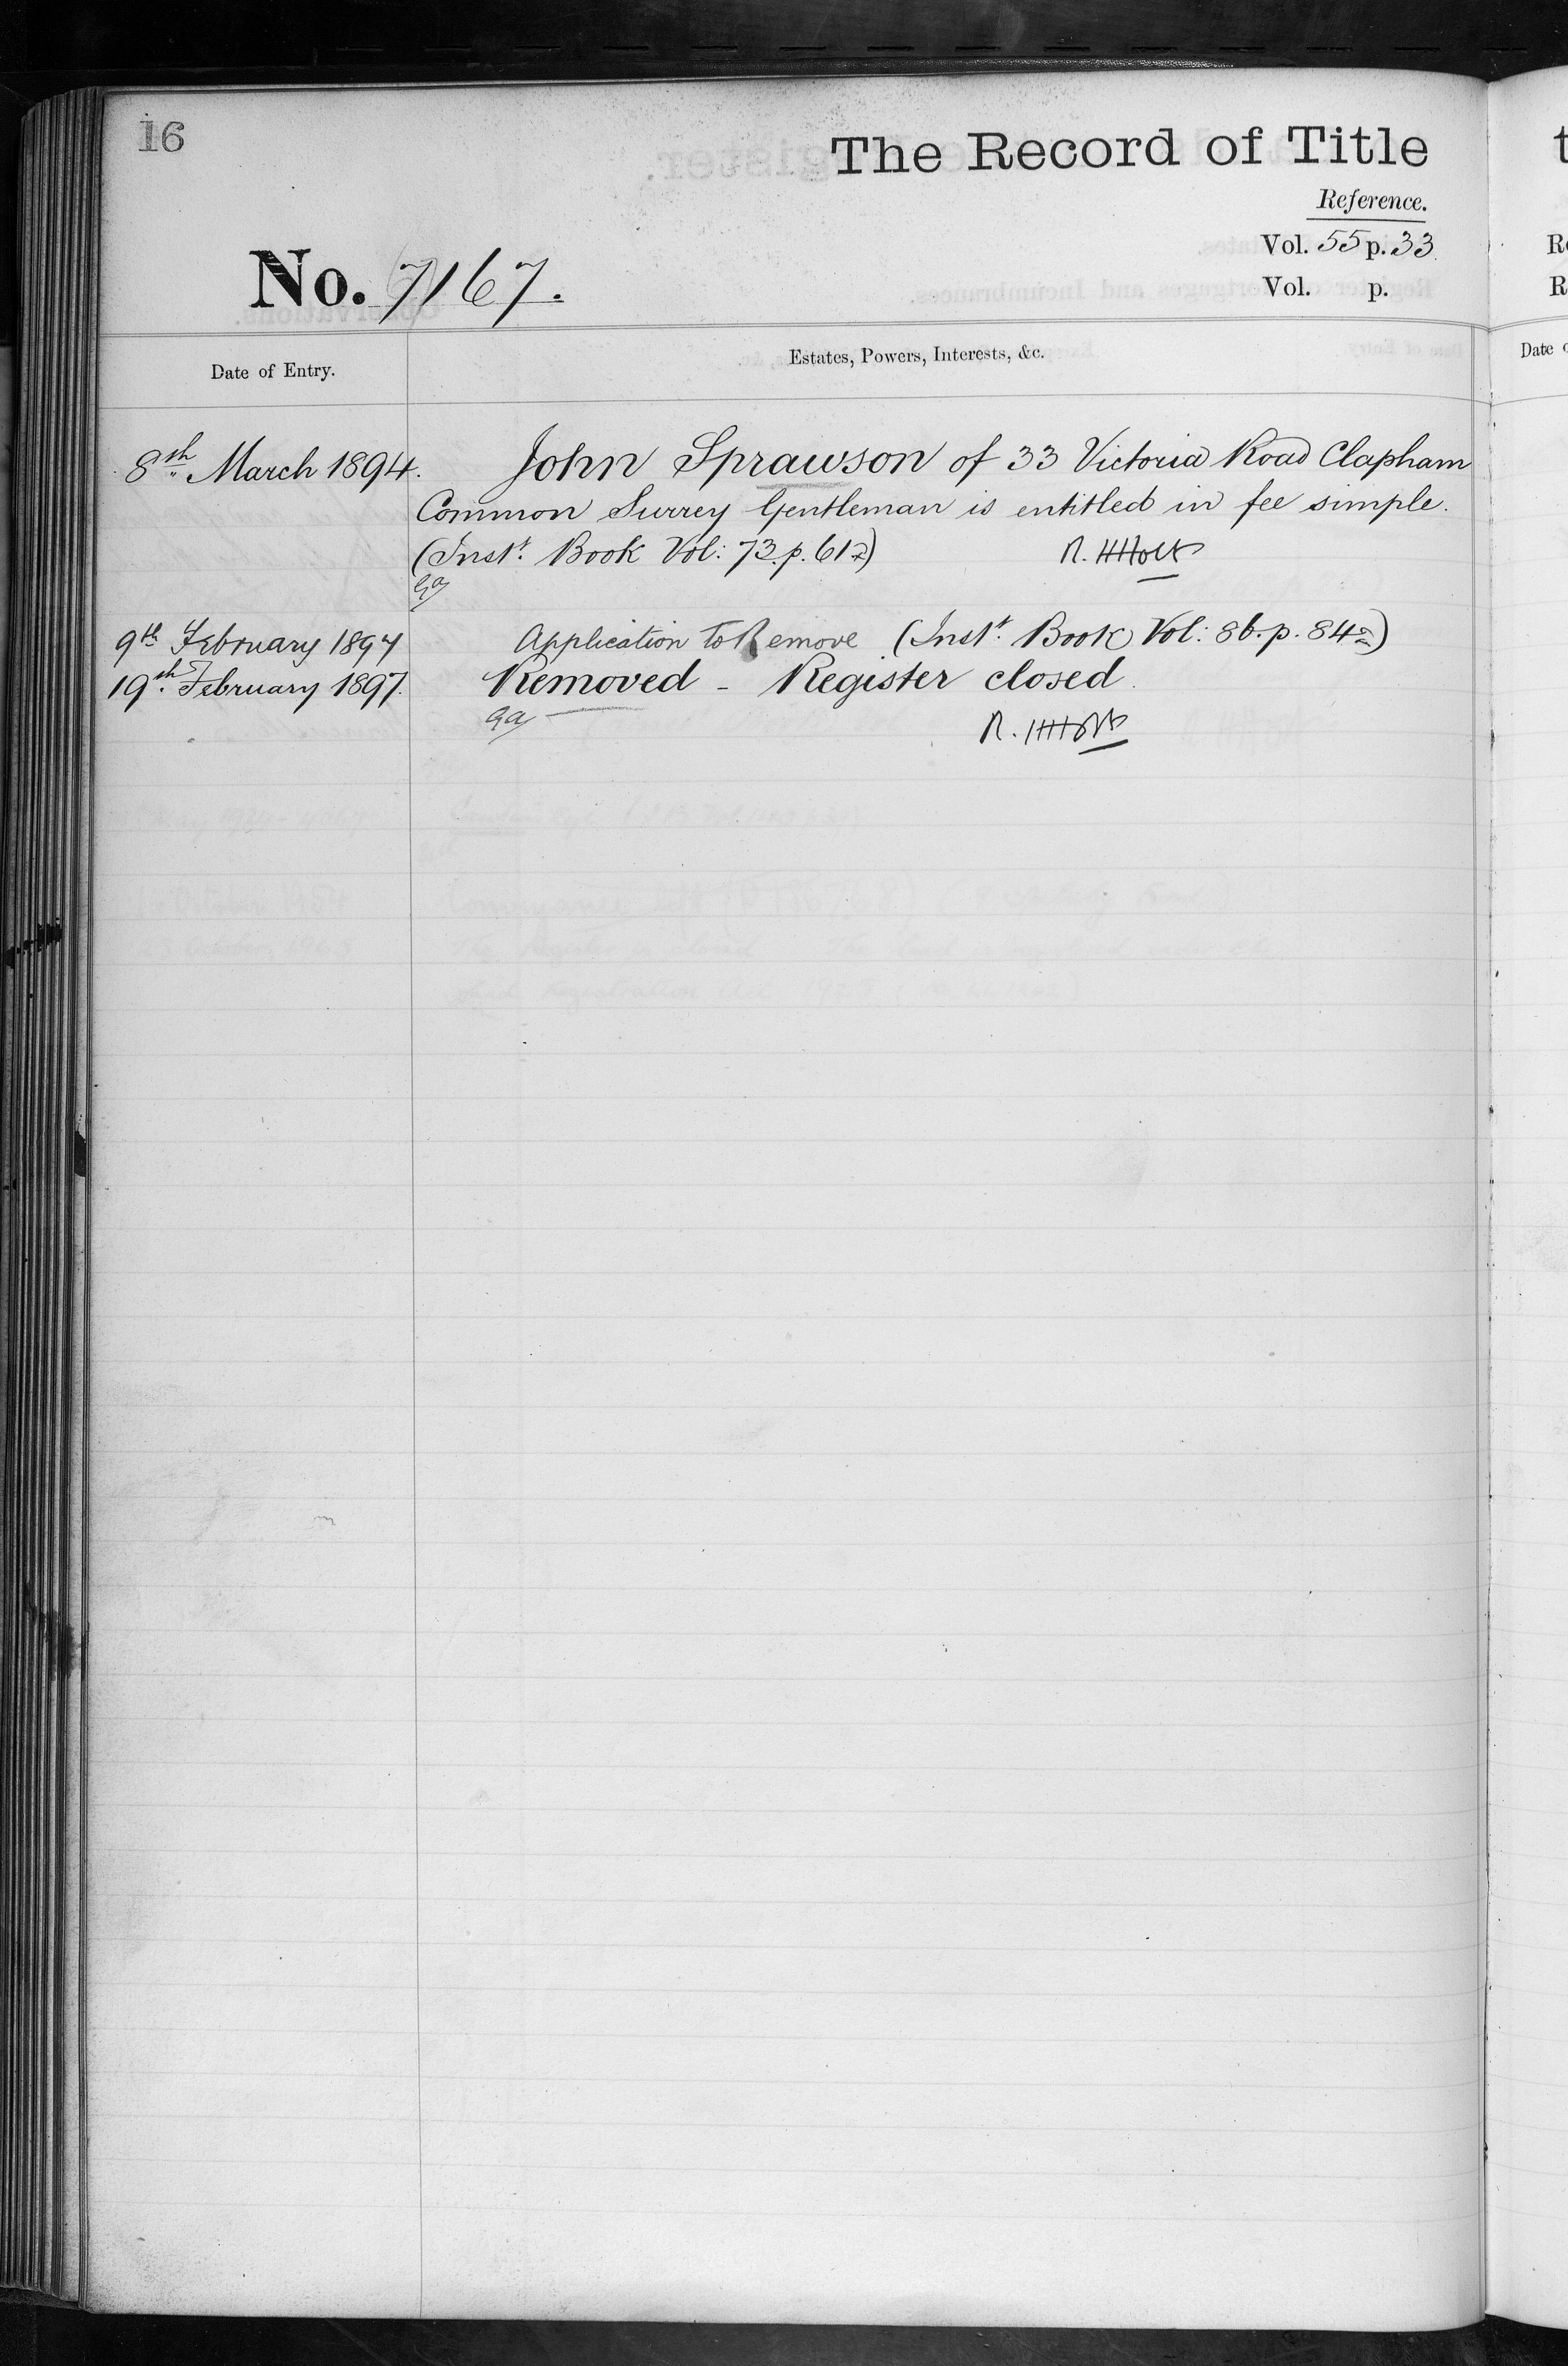 16
The Record of Title
Reference.
Vol. 55 p. 33
No. 7167.
Vol. p.
Date of Entry.
Estates, Powers, Interests, &c.
Date
8th March 1894.
John Sprawson of 33 Victoria Road Clapham
Common Surrey Gentleman is entitled in fee simple.
(Inst. Book Vol: 73. p. 612)
R. H Holt
9th February 1897
Application to Remove (Inst. Book Vol: 86. p. 842)
19th February 1897.
Removed - Register closed.
R. H Holt